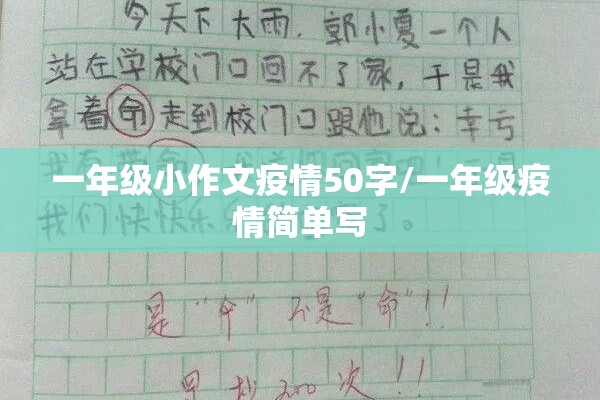 今天下大雨，郭小夏一个人
站在学校门口回不了家，于是我
拿着命走到校门口跟他说：幸亏
一年级小作文疫情50字/一年级疫
我们快快乐
了。
情简单写
是“伞”不是“命”!!
抄200次!!